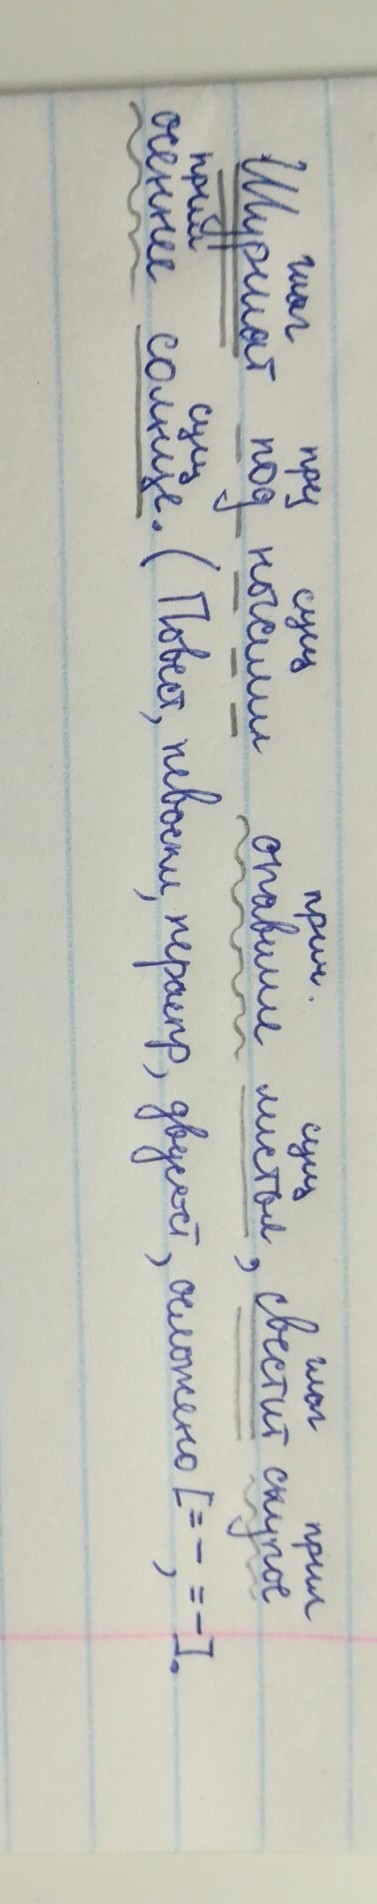 глаг пр сущ прич. сущ глаг прил
Шуршат под ногами опавшие листья, светит скупое
прил сущ
осеннее солнце. (Повест, невоскл, нераспр, двусост, осложено [= - , = -].